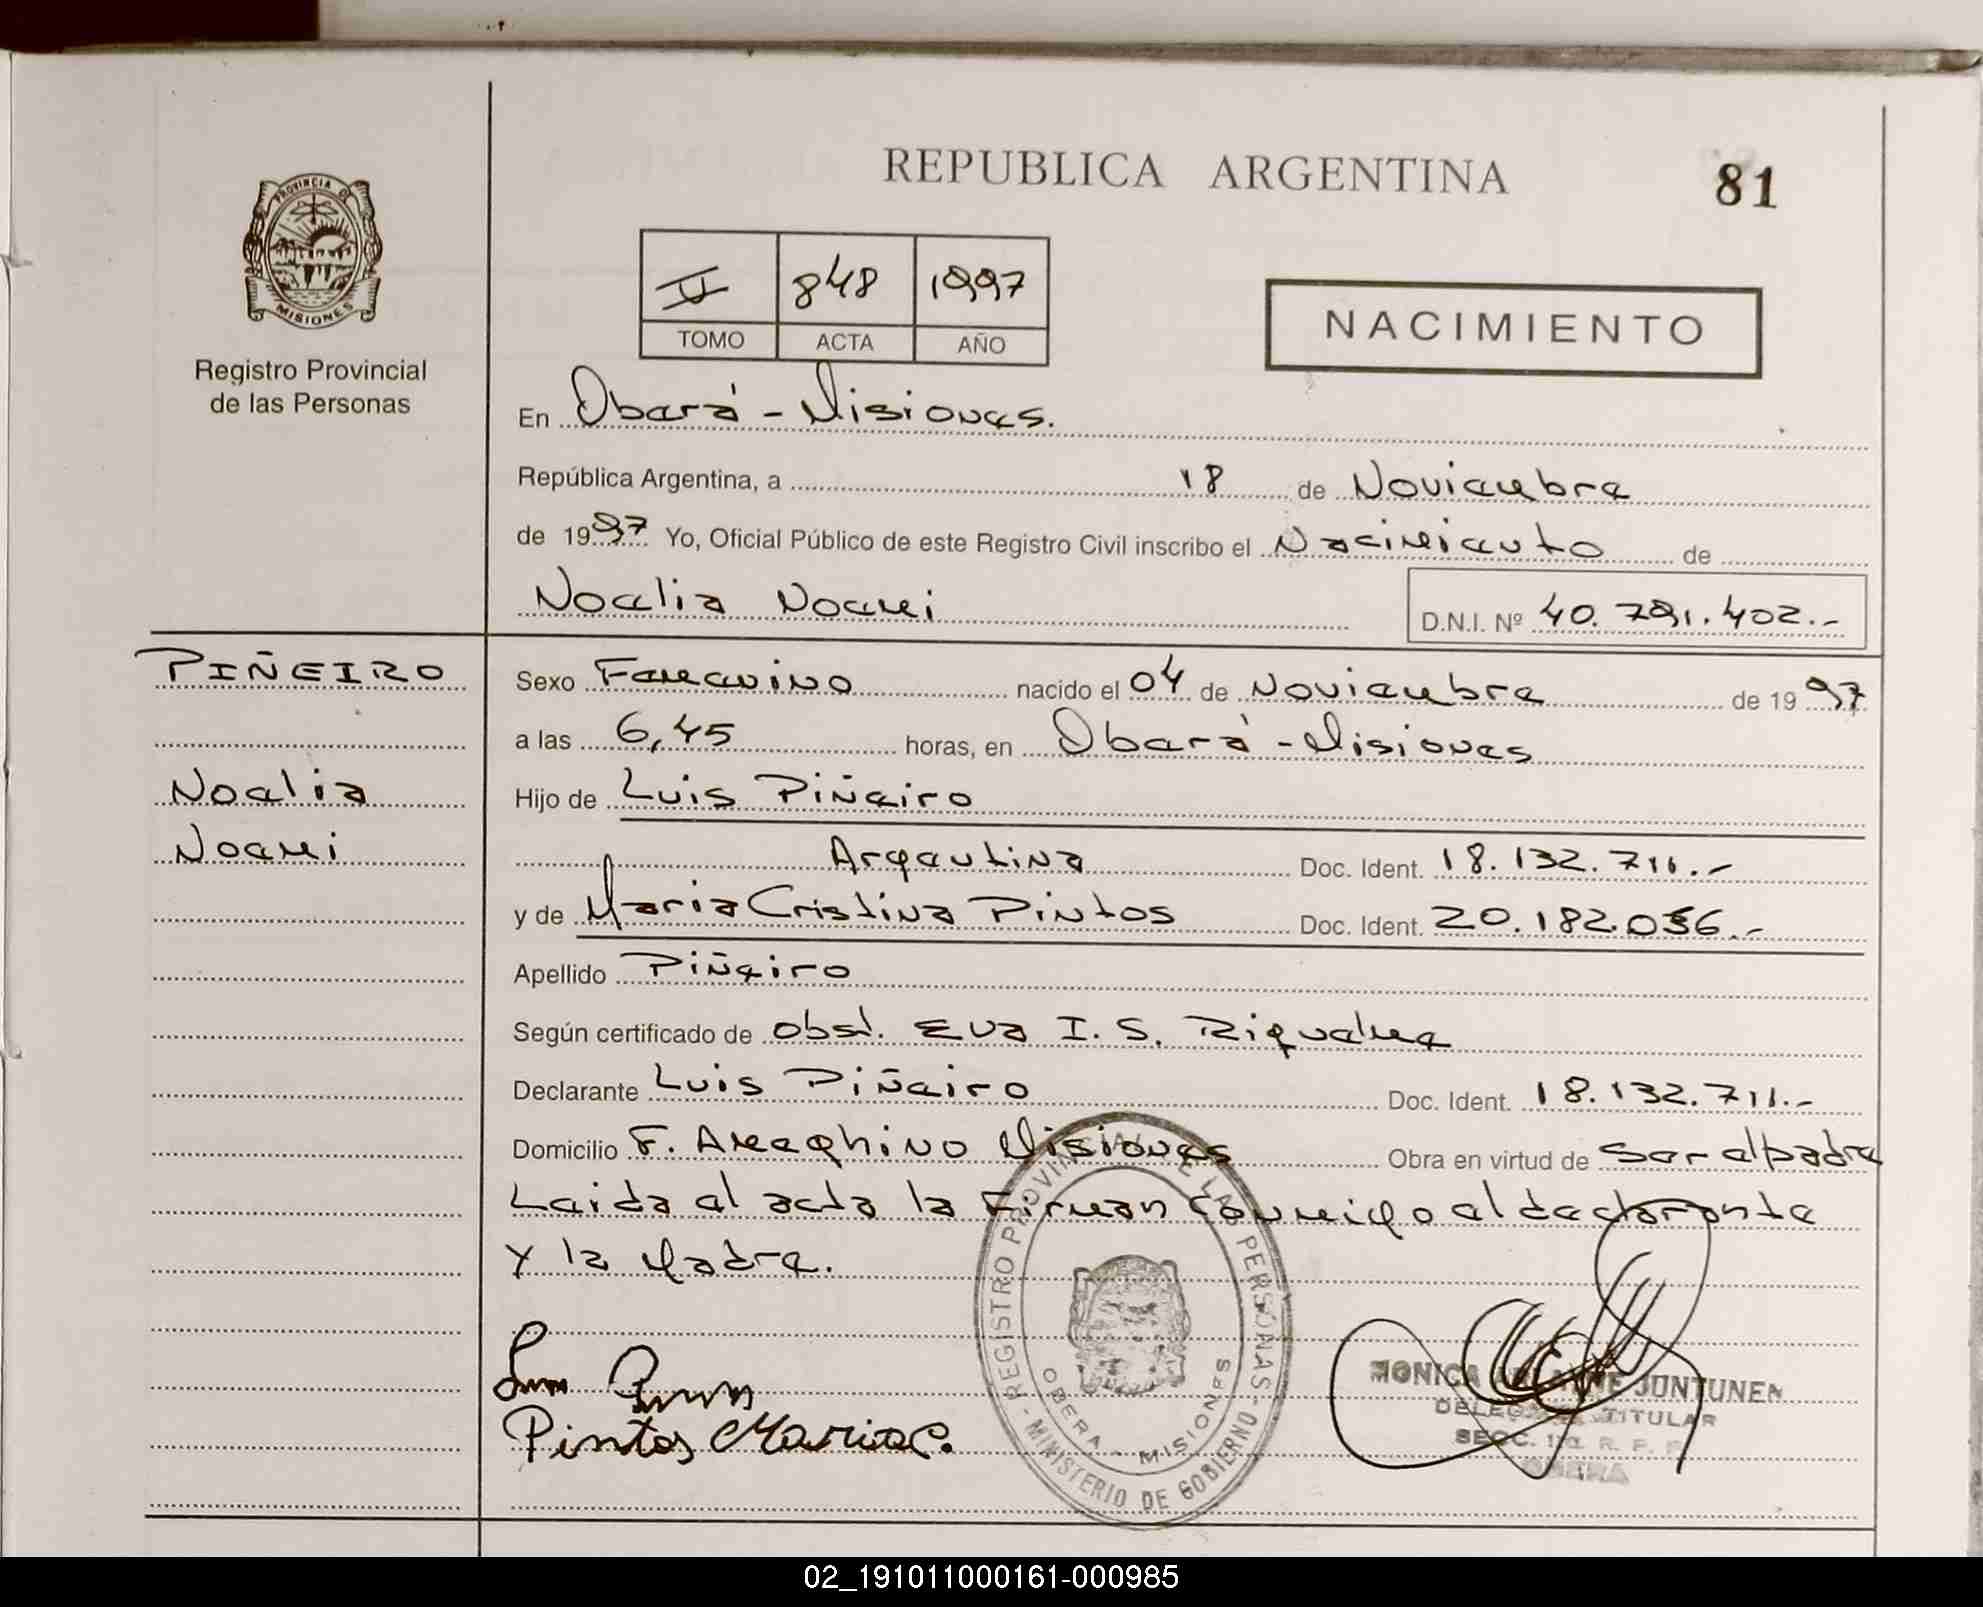 REPUBLICA ARGENTINA
81
PROVINCIA DE
MISIONES
Registro Provincial
de las Personas
II 848 1997
TOMO ACTA AÑO
NACIMIENTO
En Oberá - Misiones.
República Argentina, a 18 de Noviembre
de 1997 Yo, Oficial Público de este Registro Civil inscribo el Nacimiento de
Noelia Noemi D.N.I. Nº 40.791.402.-
PIÑEIRO
Noelia
Noemi
Sexo Femenino nacido el 04 de Noviembre de 1997
a las 6,45 horas, en Oberá - Misiones
Hijo de Luis Piñeiro
Argentina Doc. Ident. 18.132.711.-
y de Maria Cristina Pintos Doc. Ident. 20.182.036.-
Apellido Piñeiro
Según certificado de obst. Eva I. S. Riquelme
Declarante Luis Piñeiro Doc. Ident. 18.132.711.-
Domicilio F. Ameghino Misiones Obra en virtud de Ser el padre
Leida el acta la Firman conmigo el declarante
y la Madre.
Pintos Maria C.
REGISTRO PROVINCIAL DE LAS PERSONAS - MINISTERIO DE GOBIERNO -
OBERA - MISIONES
MONICA JUNTUNEN
TITULAR
SECC. R. P.
OBERA
02_191011000161-000985